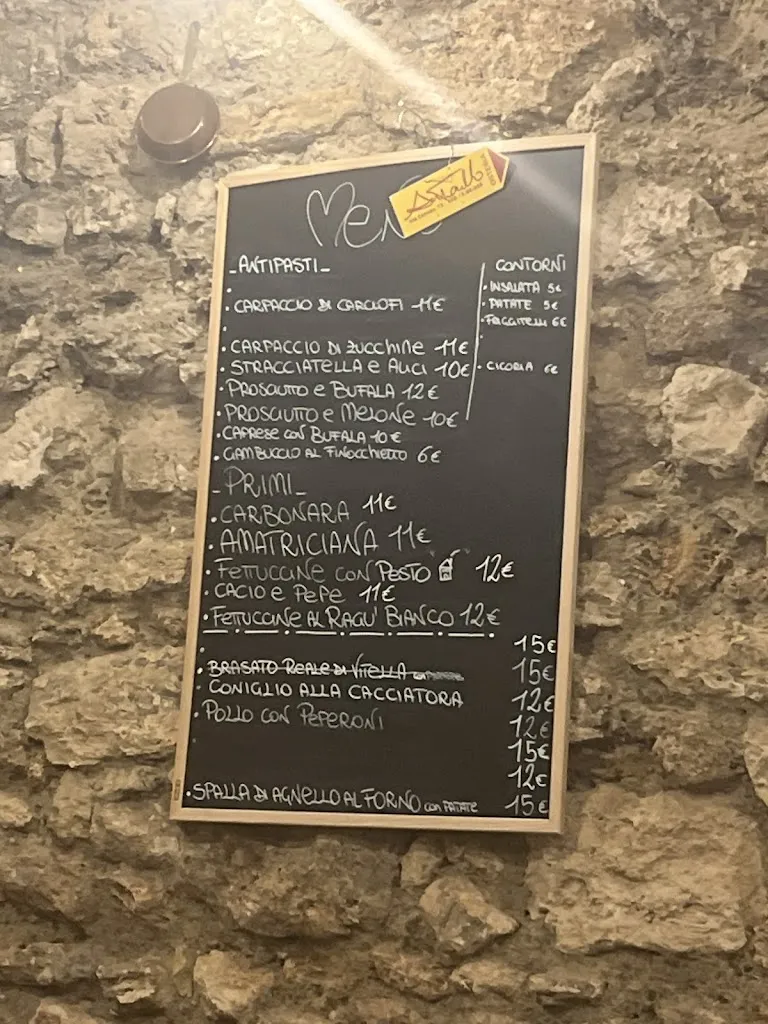 Menu
OSTERIA
_ANTIPASTI_
• CARPACCIO DI CARCIOFI 11€
• CARPACCIO DI ZUCCHINE 11€
• STRACCIATELLA E ALICI 10€
• PROSCIUTTO E BUFALA 12€
• PROSCIUTTO E MELONE 10€
• CAPRESE CON BUFALA 10€
• GAMBUCCIO AL FINOCCHIETTO 6€
CONTORNI
• INSALATA 5€
• PATATE 5€
• FRIGGITELLI 6€
• CICORIA 6€
_PRIMI_
• CARBONARA 11€
• AMATRICIANA 11€
• FETTUCCINE CON PESTO 12€
• CACIO E PEPE 11€
• FETTUCCINE AL RAGU' BIANCO 12€
15€
• BRASATO REALE DI VITELLA 15€
• CONIGLIO ALLA CACCIATORA 12€
• POLLO CON PEPERONI 12€
15€
12€
• SPALLA DI AGNELLO AL FORNO CON PATATE 15€